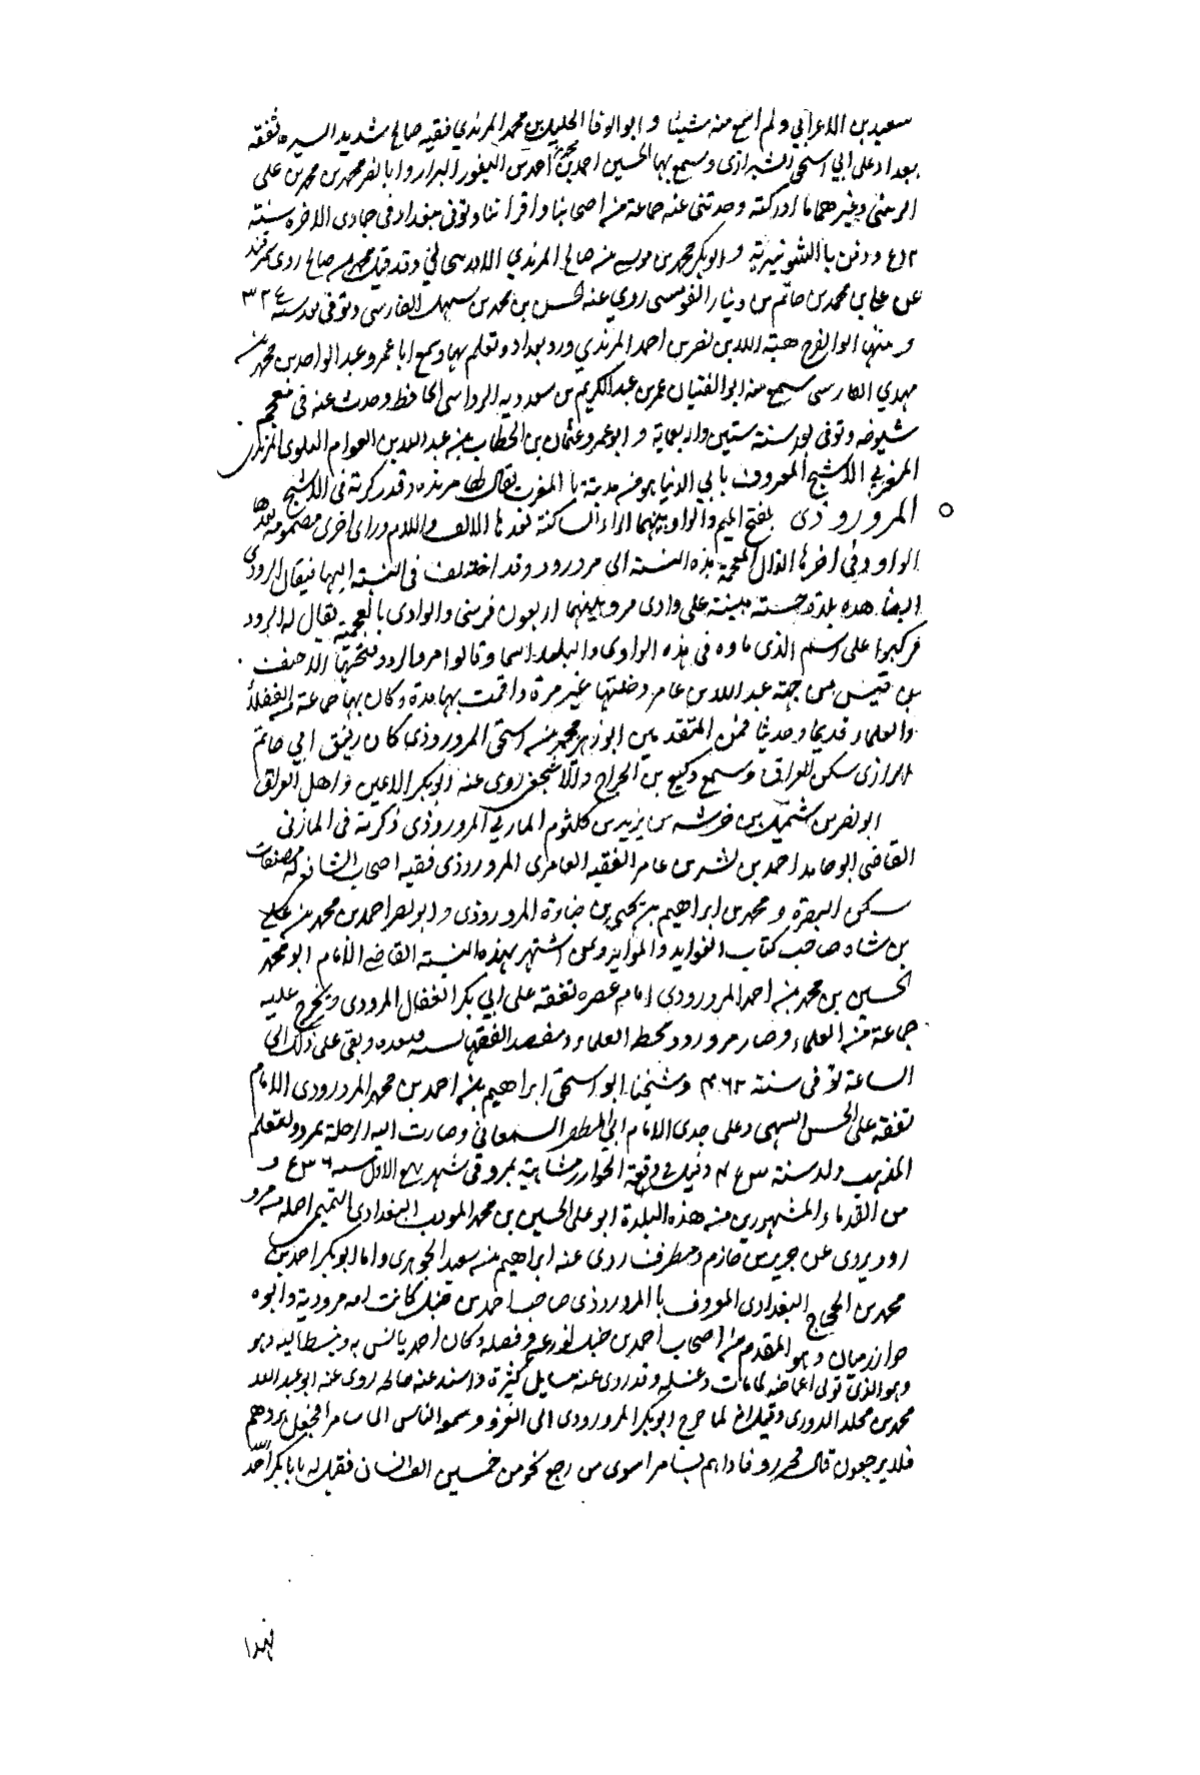 سعيد بن الاعرابي ولم اسمع منه شيئا و ابو الوفا الخليل بن محمد المرندي فقيه صالح شديد السيره تفقه
ببغداد على ابي اسحق الشيرازى وسمع بها الحسين احمد بن محمد بن احمد بن النقور البزار وابا نصر محمد بن محمد بن على
الزينبي وغيرهما ما ادركته وحدثنى عنه جماعة من اصحابنا واقراننا وتوفى ببغداد فى جمادى الاخره سنة
ودفن بالشونيزية و ابو بكر محمد بن موسى بن صالح المرندي وقد قيل محمد بن صالح روى
عن على بن محمد بن حاتم بن دينار القومسى روي عنه الحسن بن محمد بن سهل الفارسى وتوفى بعد سنة ٣٢٤
و منها ابو الفرج هبة الله بن نصر بن احمد المرندي ورد بغداد وتعلم بها وسمع ابا عمرو عبد الواحد بن محمد بن
مهدي الفارسى سمع منه ابو الفتيان عمر بن عبد الكريم بن سعدويه الرواسى الحافظ وحدث عنه فى معجم
شيوخه وتوفى بعد سنة ستين واربعماية و ابو عمرو عثمان بن الخطاب بن عبد الله بن العوام البلوى المرندى
المغربي الاشج المعروف بابي الدنيا هو من مدينة بالمغرب يقال لها مرنده وقد ذكرته فى الاشج
المروروذى بفتح الميم والواو بينهما الراء الساكنة بعدها الالف واللام وراى اخرى مضمومه بعدها
الواو وفي اخرها الذال المعجمة هذه النسبة الى مرورود وقد اختلف فى النسبة اليها فيقال المروذى
ايضا هده بلدة حسنه مبنية على وادى مرو بينهما اربعون فرسخى والوادى بالعجمية يقال له الرود
فركبوا على اسم الذى ماوه فى هذه الوادى والبلد اسما وقالوا مرو الرود فتحتها الاحنف
بن قيس من جهة عبد الله بن عامر دخلتها غير مرة واقمت بها مدة وكان بها جماعة من الفضلاء
والعلماء قديما وحديثا فمن المتقدمين ابو زهير محمد بن اسحق المروروذى كان رفيق ابي حاتم
الرازى سكن العراق وسمع وكيع بن الجراح والاشجعى روى عنه ابو بكر الاعين و اهل العراق
ابو نصر بن شميل بن خرشه بن يزيد بن كلثوم المازني المروروذى ذكرته فى المازنى
القاضى ابو حامد احمد بن بشر بن عامر الفقيه العامرى المروروذى فقيه اصحاب الشافعى له مصنفات
سكن البصرة و محمد بن ابراهيم بن يحيى بن جنادة المروروذى و ابو نصر احمد بن محمد بن على
بن شاه صاحب كتاب الفوايد والموايد وممن اشتهر بهذه النسبة القاضي الامام ابو محمد
الحسين بن محمد بن احمد المرورودى امام عصره تفقه على ابي بكر القفال المرودى وتخرج عليه
جماعة من العلماء وصار مرورود محط العلماء ومقصد الفقهاء بعده وبقى على ذلك الى
الساعة توفى سنة ٤٦٢ وشيخنا ابو اسحق ابراهيم بن احمد بن محمد المرورودى الامام
تفقه على الحسن النيهى وعلى جدى الامام ابي المظفر السمعانى وصارت اليه الرحلة بمرو ولتعلم
المذهب ولد سنة ٤٥٣ وقتل فى وقعة الخوارزمشاهية بمرو فى شهر ربيع الاول سنة ٥٣٦ و
من القدماء المشهورين من هذه البلدة ابو على الحسين بن محمد المودب البغدادى التميمى اصله من مرو
رود يروى عن جرير بن حازم ومطرف روى عنه ابراهيم بن سعيد الجوهرى واما ابو بكر احمد بن
محمد بن الحجاج البغدادى المعروف بالمروروذى صاحب احمد بن حنبل كانت امه مروذية وابوه
خوارزميان وهو المقدم من اصحاب احمد بن حنبل لورعه وفضله وكان احمد يانس به وينبسط اليه وهو
وهو الذى تولى اغماضه لما مات وغسله وقد روى عنه مسايل كثيرة واسند عنه صالحه روى عنه ابو عبد الله
محمد بن مخلد الدورى وقيل انه لما خرج ابو بكر المرورودى الى الغزو وشيعه الناس الى سامرا فجعل يردهم
فلا يرجعون قال فحزروا فاذا هم بسامرا سوى من رجع نحو من خمسين الف انسان فقيل له يا ابا بكر احمد الله
فهذا